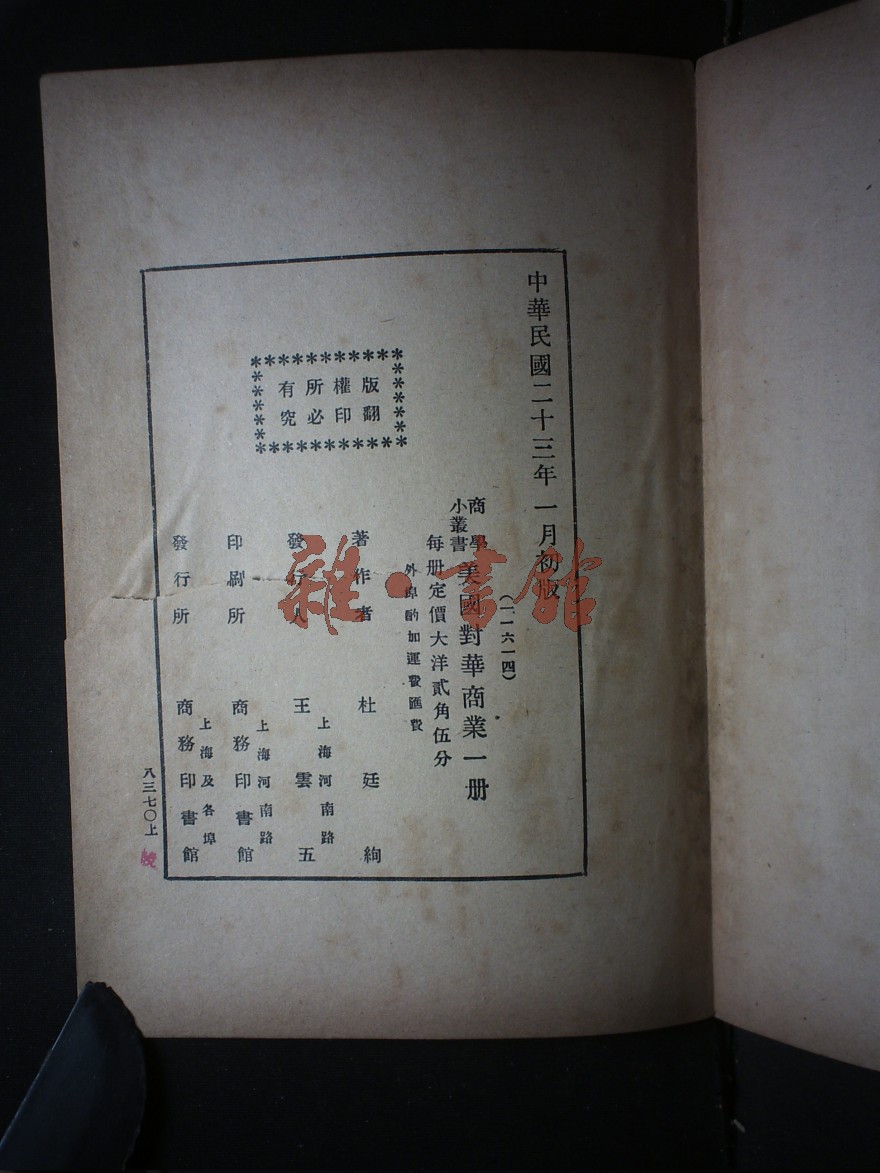 中華民國二十三年一月初版
(一一六一四)
商學小叢書 美國對華商業一册
每册定價大洋貳角伍分
外埠酌加運費匯費
版權所有
翻印必究
著作者 杜廷絢
發行人 王雲五
上海河南路
印刷所 商務印書館
上海河南路
發行所 商務印書館
上海及各埠
八三七〇上
雜·書館